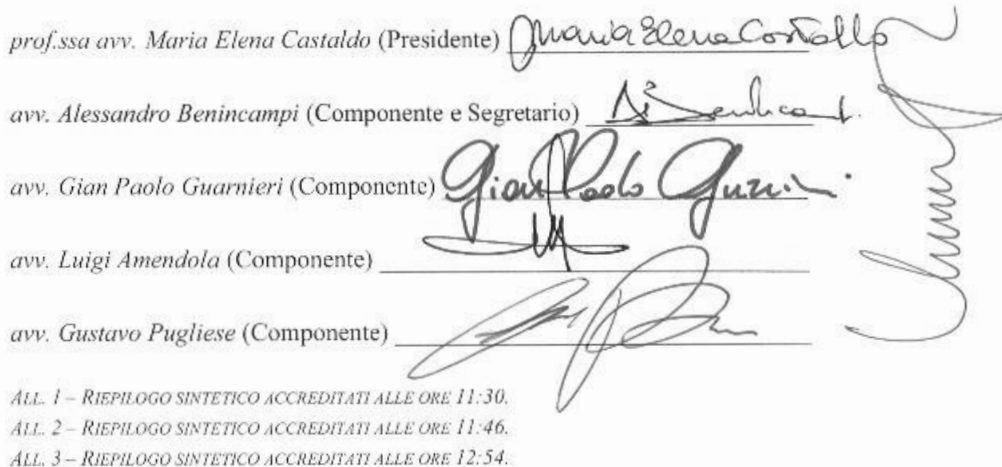 prof.ssa avv. Maria Elena Castaldo (Presidente) Maria Elena Castaldo
avv. Alessandro Benincampi (Componente e Segretario)
avv. Gian Paolo Guarnieri (Componente) Gian Paolo
avv. Luigi Amendola (Componente)
avv. Gustavo Pugliese (Componente)
ALL. 1 – RIEPILOGO SINTETICO ACCREDITATI ALLE ORE 11:30.
ALL. 2 – RIEPILOGO SINTETICO ACCREDITATI ALLE ORE 11:46.
ALL. 3 – RIEPILOGO SINTETICO ACCREDITATI ALLE ORE 12:54.